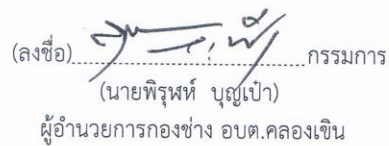 (ลงชื่อ)..............................กรรมการ
(นายพิรุฬห์ บุญเป๋า)
ผู้อำนวยการกองช่าง อบต.คลองเขิน